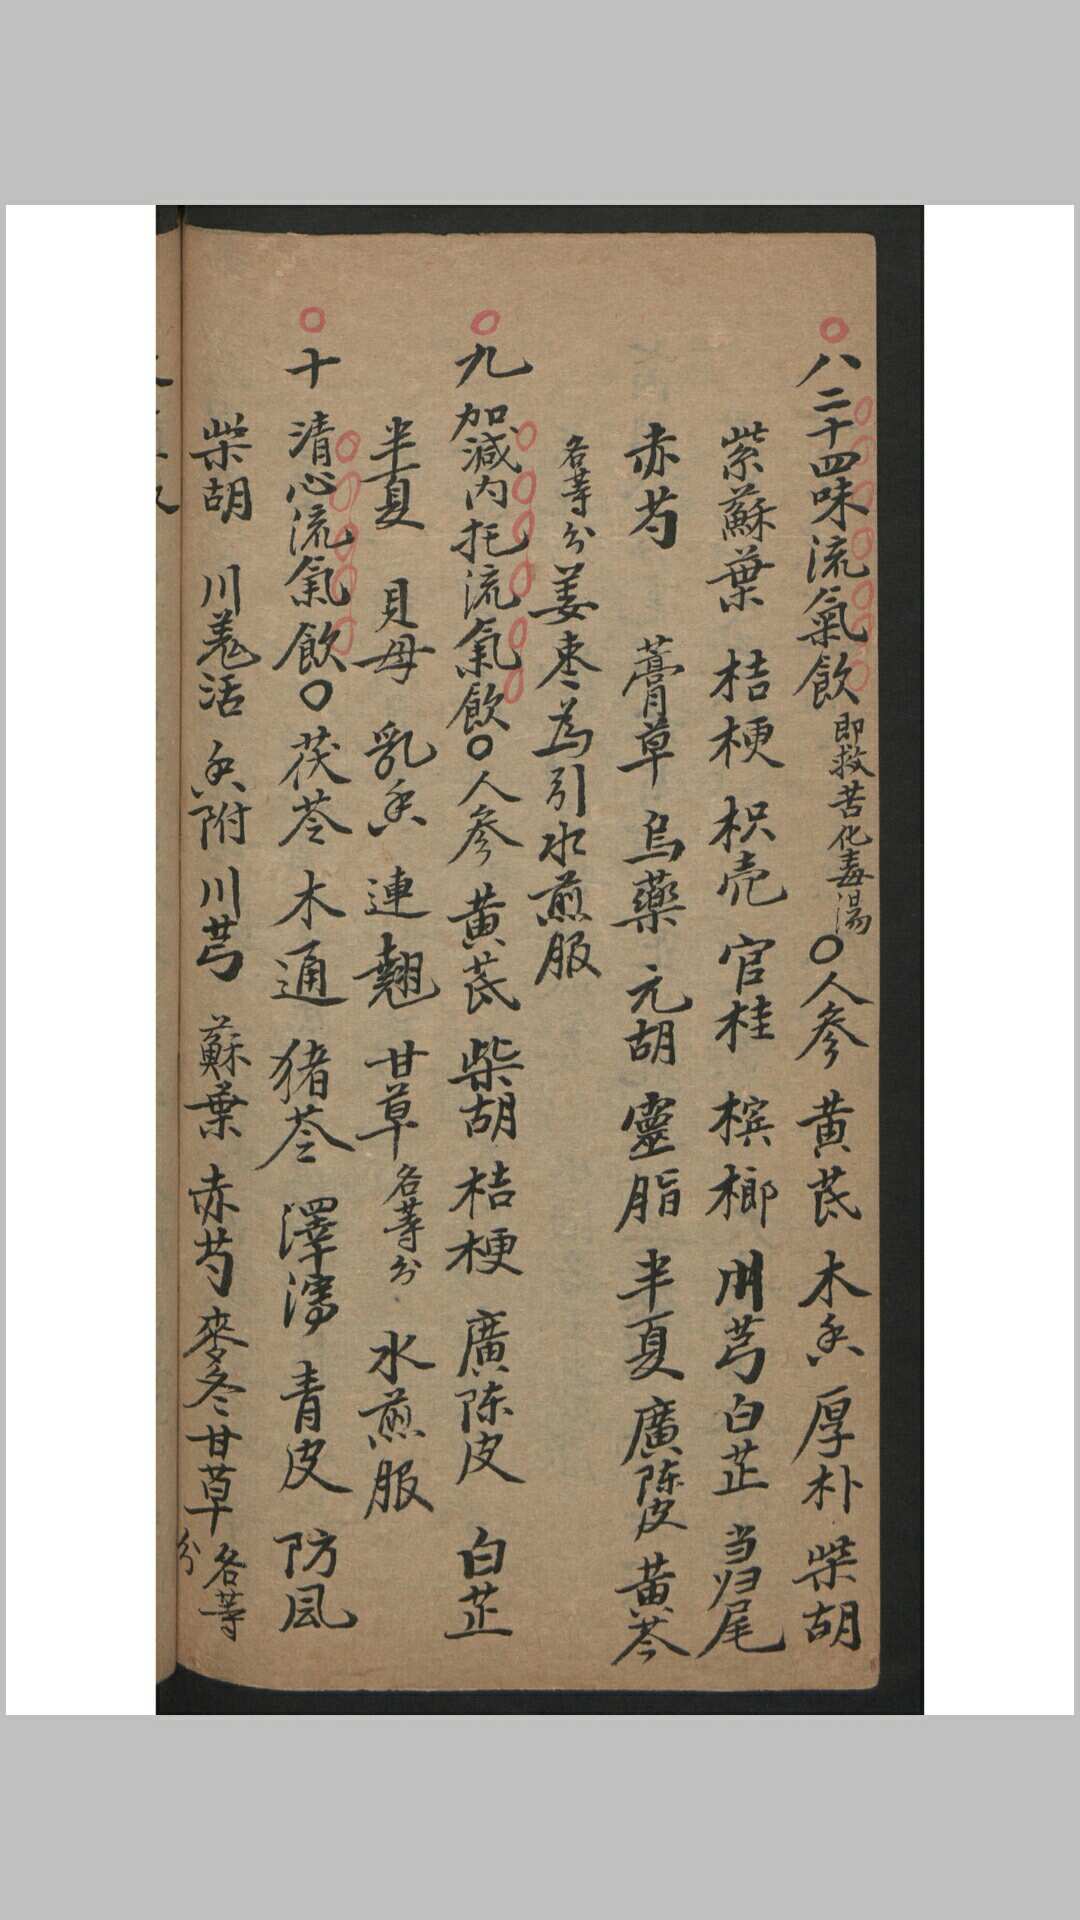 八二十四味流氣飲即救苦化毒湯〇人參 黃芪 木香 厚朴 柴胡
紫蘇葉 桔梗 枳壳 官桂 檳榔 川芎 白芷 当归尾
赤芍 藁草 烏藥 元胡 靈脂 半夏 廣陳皮 黃芩
各等分姜枣為引水煎服
九 加減内托流氣飲〇人參 黃芪 柴胡 桔梗 廣陳皮 白芷
半夏 貝母 乳香 連翹 甘草各等分 水煎服
十 清心流氣飲〇茯苓 木通 猪苓 澤瀉 青皮 防風
柴胡 川羗活 香附 川芎 蘇葉 赤芍 麥冬 甘草 各等分